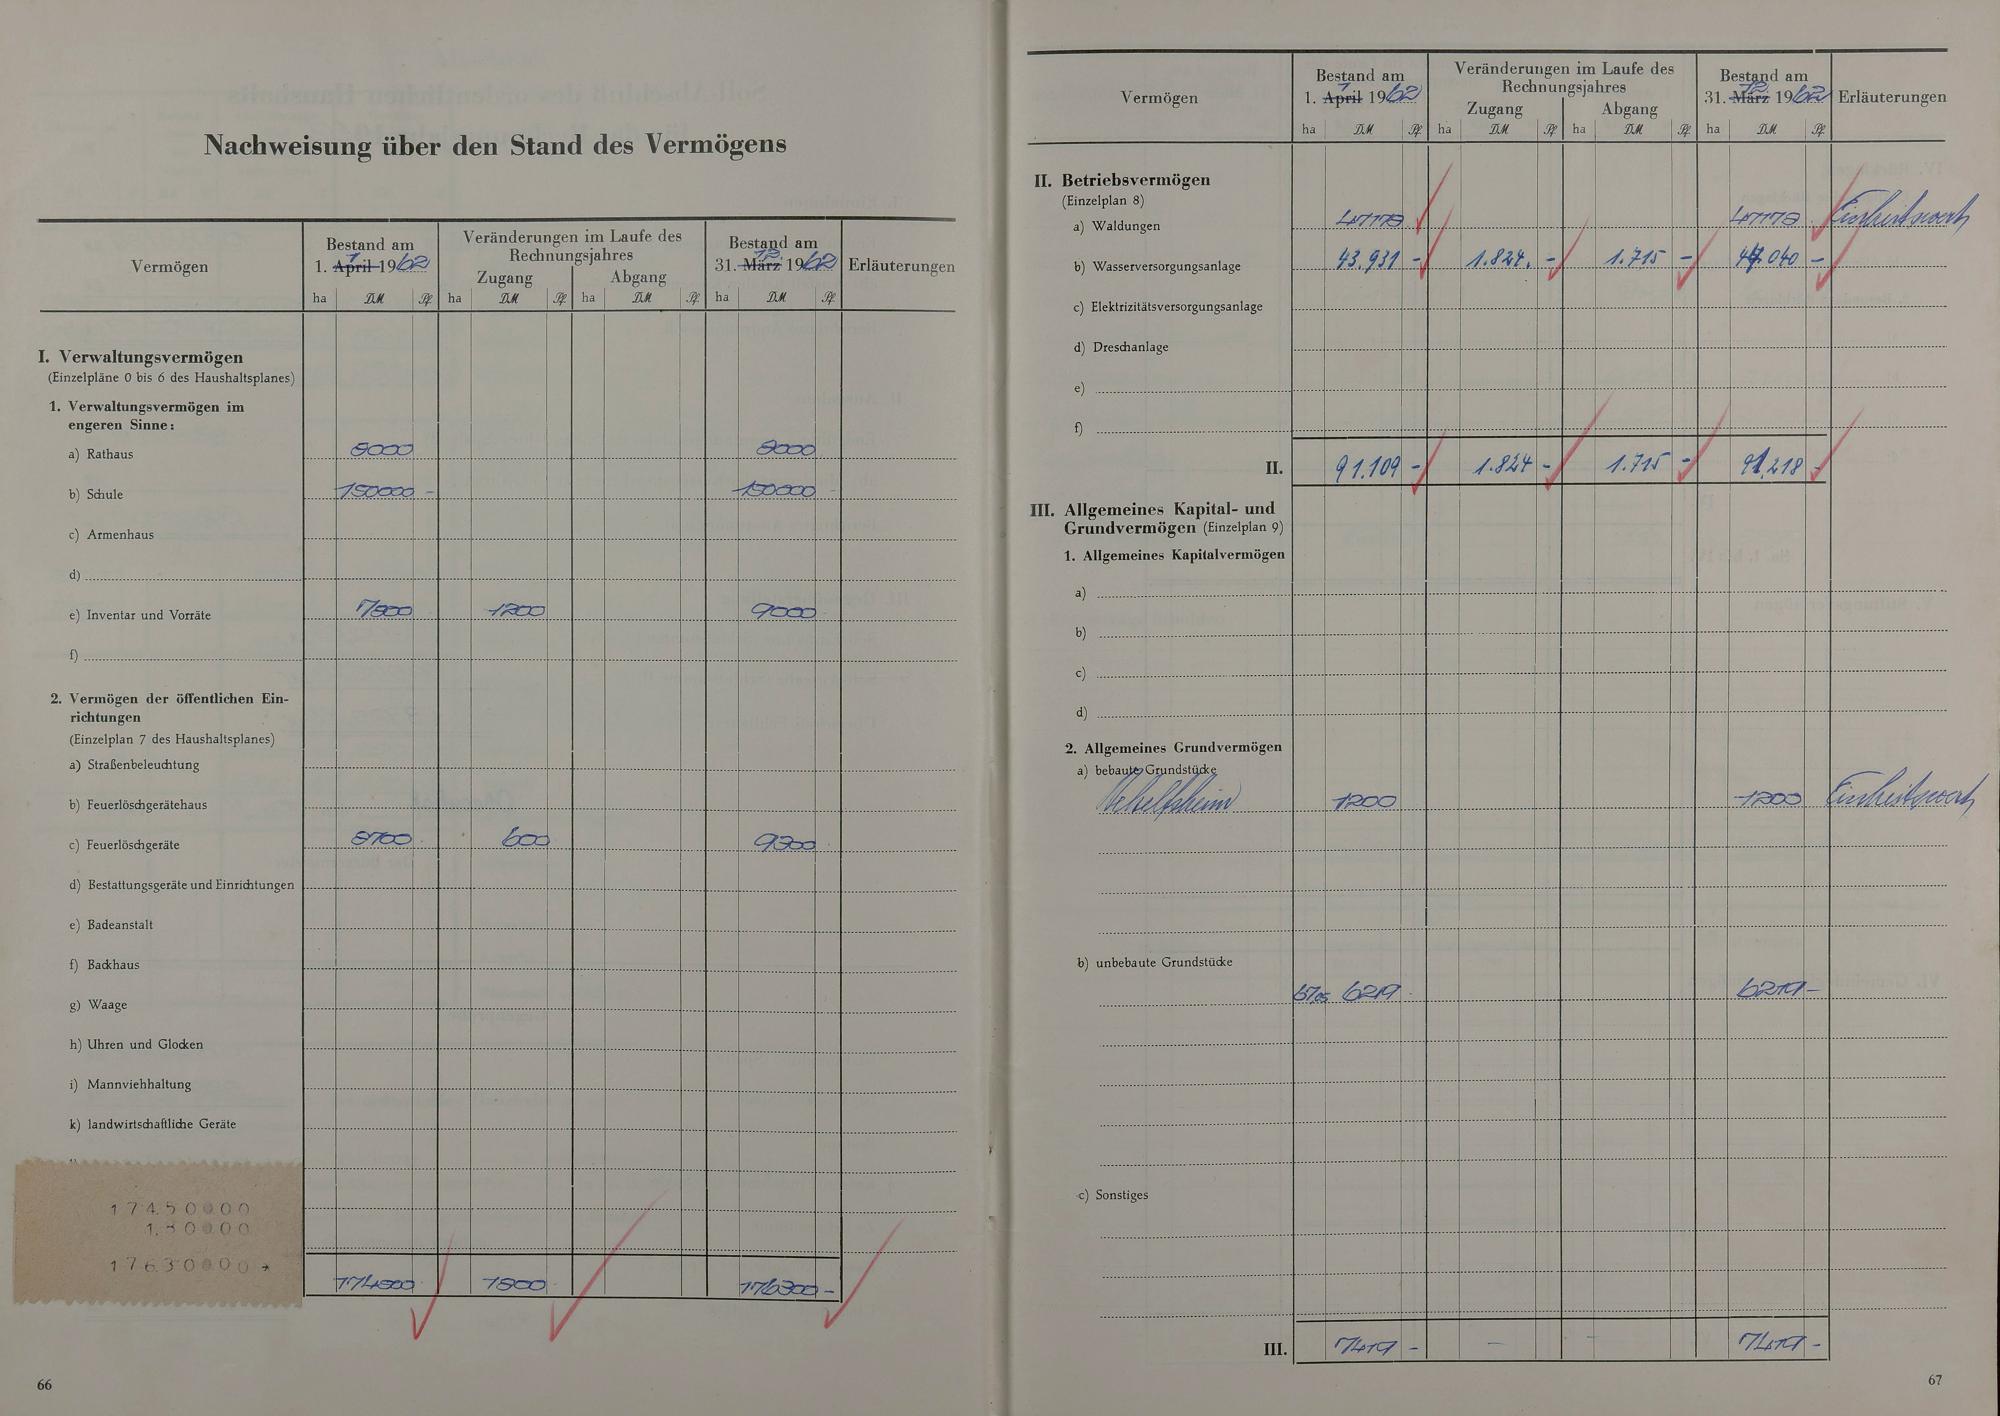 Nachweisung über den Stand des Vermögens
Vermögen
Bestand am
1. April 1962
1
Veränderungen im Laufe des
Rechnungsjahres
Zugang
Abgang
Bestand am
31. März 1962
12
Erläuterungen
ha DM Pf ha DM Pf ha DM Pf ha DM Pf
I. Verwaltungsvermögen
(Einzelpläne 0 bis 6 des Haushaltsplanes)
1. Verwaltungsvermögen im
engeren Sinne:
a) Rathaus 8000 8000
b) Schule 150000 - 150000 -
c) Armenhaus
d)
e) Inventar und Vorräte 7800 1200 9000
f)
2. Vermögen der öffentlichen Ein-
richtungen
(Einzelplan 7 des Haushaltsplanes)
a) Straßenbeleuchtung
b) Feuerlöschgerätehaus
c) Feuerlöschgeräte 8700 600 9300
d) Bestattungsgeräte und Einrichtungen
e) Badeanstalt
f) Backhaus
g) Waage
h) Uhren und Glocken
i) Mannviehhaltung
k) landwirtschaftliche Geräte
174.50000
1.80000
176.30000
174500 1800 176300 -
66
Vermögen
Bestand am
1. April 1962
1
Veränderungen im Laufe des
Rechnungsjahres
Zugang
Abgang
Bestand am
31. März 1962
12
Erläuterungen
ha DM Pf ha DM Pf ha DM Pf ha DM Pf
II. Betriebsvermögen
(Einzelplan 8)
a) Waldungen 47178 47178 Einheitswert
b) Wasserversorgungsanlage 43.931 - 1.824. - 1.715 - 44.040 -
c) Elektrizitätsversorgungsanlage
d) Dreschanlage
e)
f)
II. 91.109 - 1.824 - 1.715 - 91.218 -
III. Allgemeines Kapital- und
Grundvermögen (Einzelplan 9)
1. Allgemeines Kapitalvermögen
a)
b)
c)
d)
2. Allgemeines Grundvermögen
a) bebaute Grundstücke
1200 1200 Einheitswert
b) unbebaute Grundstücke
6219 6219 -
c) Sonstiges
III. 7419 - - - 7419 -
67